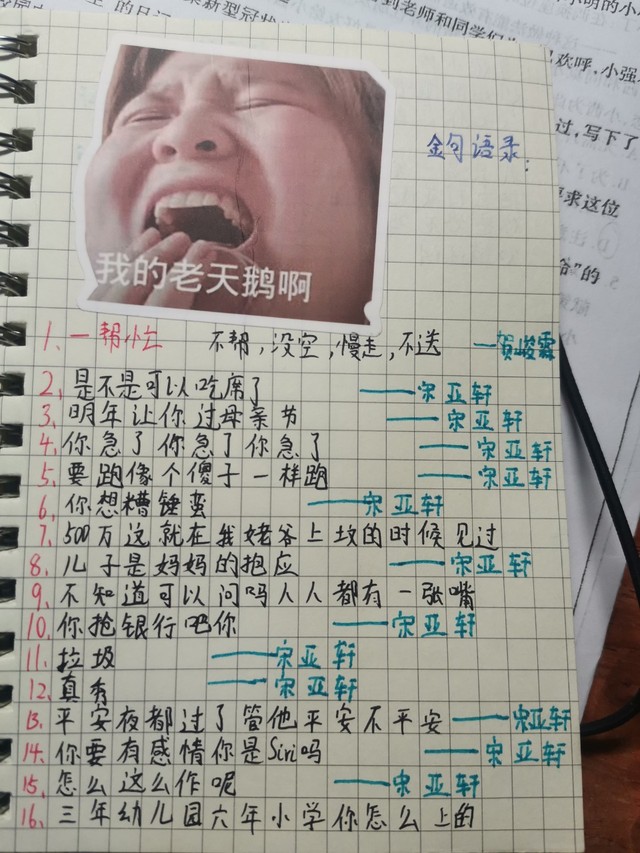 到老师和同学们
欢呼，小强
过，写下了
求这位
的
金句语录：
我的老天鹅啊
1、一帮小亡 不帮，没空，慢走，不送 —贺峻霖
2、是不是可以吃席了 ——宋亚轩
3、明年让你过母亲节 ——宋亚轩
4、你急了你急了你急了 ——宋亚轩
5、要跑像个傻子一样跑 ——宋亚轩
6、你想糟锤蛮 ——宋亚轩
7、500万这就在我姥爷上坟的时候见过
8、儿子是妈妈的抱应 ——宋亚轩
9、不知道可以问吗人人都有一张嘴
10、你抢银行吧你 ——宋亚轩
11、垃圾 ——宋亚轩
12、真秀 ——宋亚轩
13、平安夜都过了管他平安不平安——宋亚轩
14、你要有感情你是Siri吗 ——宋亚轩
15、怎么这么作呢 ——宋亚轩
16、三年幼儿园六年小学你怎么上的